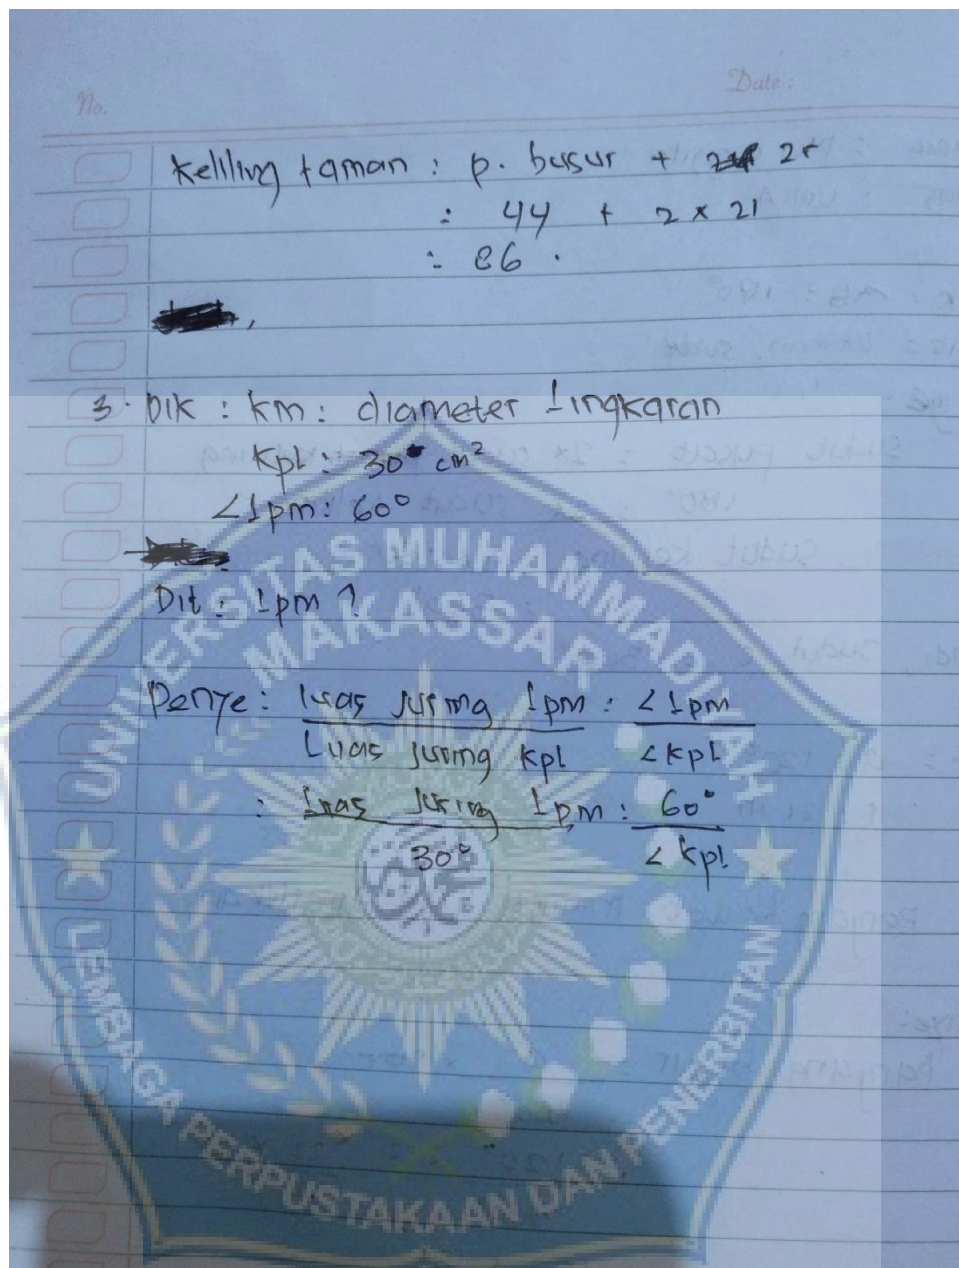 No.
Date :
Kelilling taman : p. busur + 2r
: 44 + 2 x 21
: 86 .
3. Dik : km : diameter lingkaran
Kpl : 30 cm²
<lpm : 60°
Dit : lpm ?
Penye : luas juring lpm : < lpm
Luas juring kpl < kpl
: luas juring lpm : 60°
30° < kpl
UNIVERSITAS MUHAMMADIYAH
MAKASSAR
LEMBAGA PERPUSTAKAAN DAN PENERBITAN